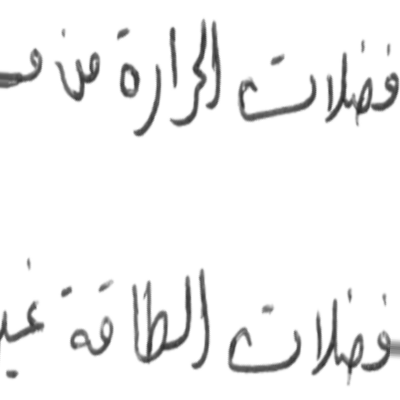 فضلات الحرارة من
فضلات الطاقة